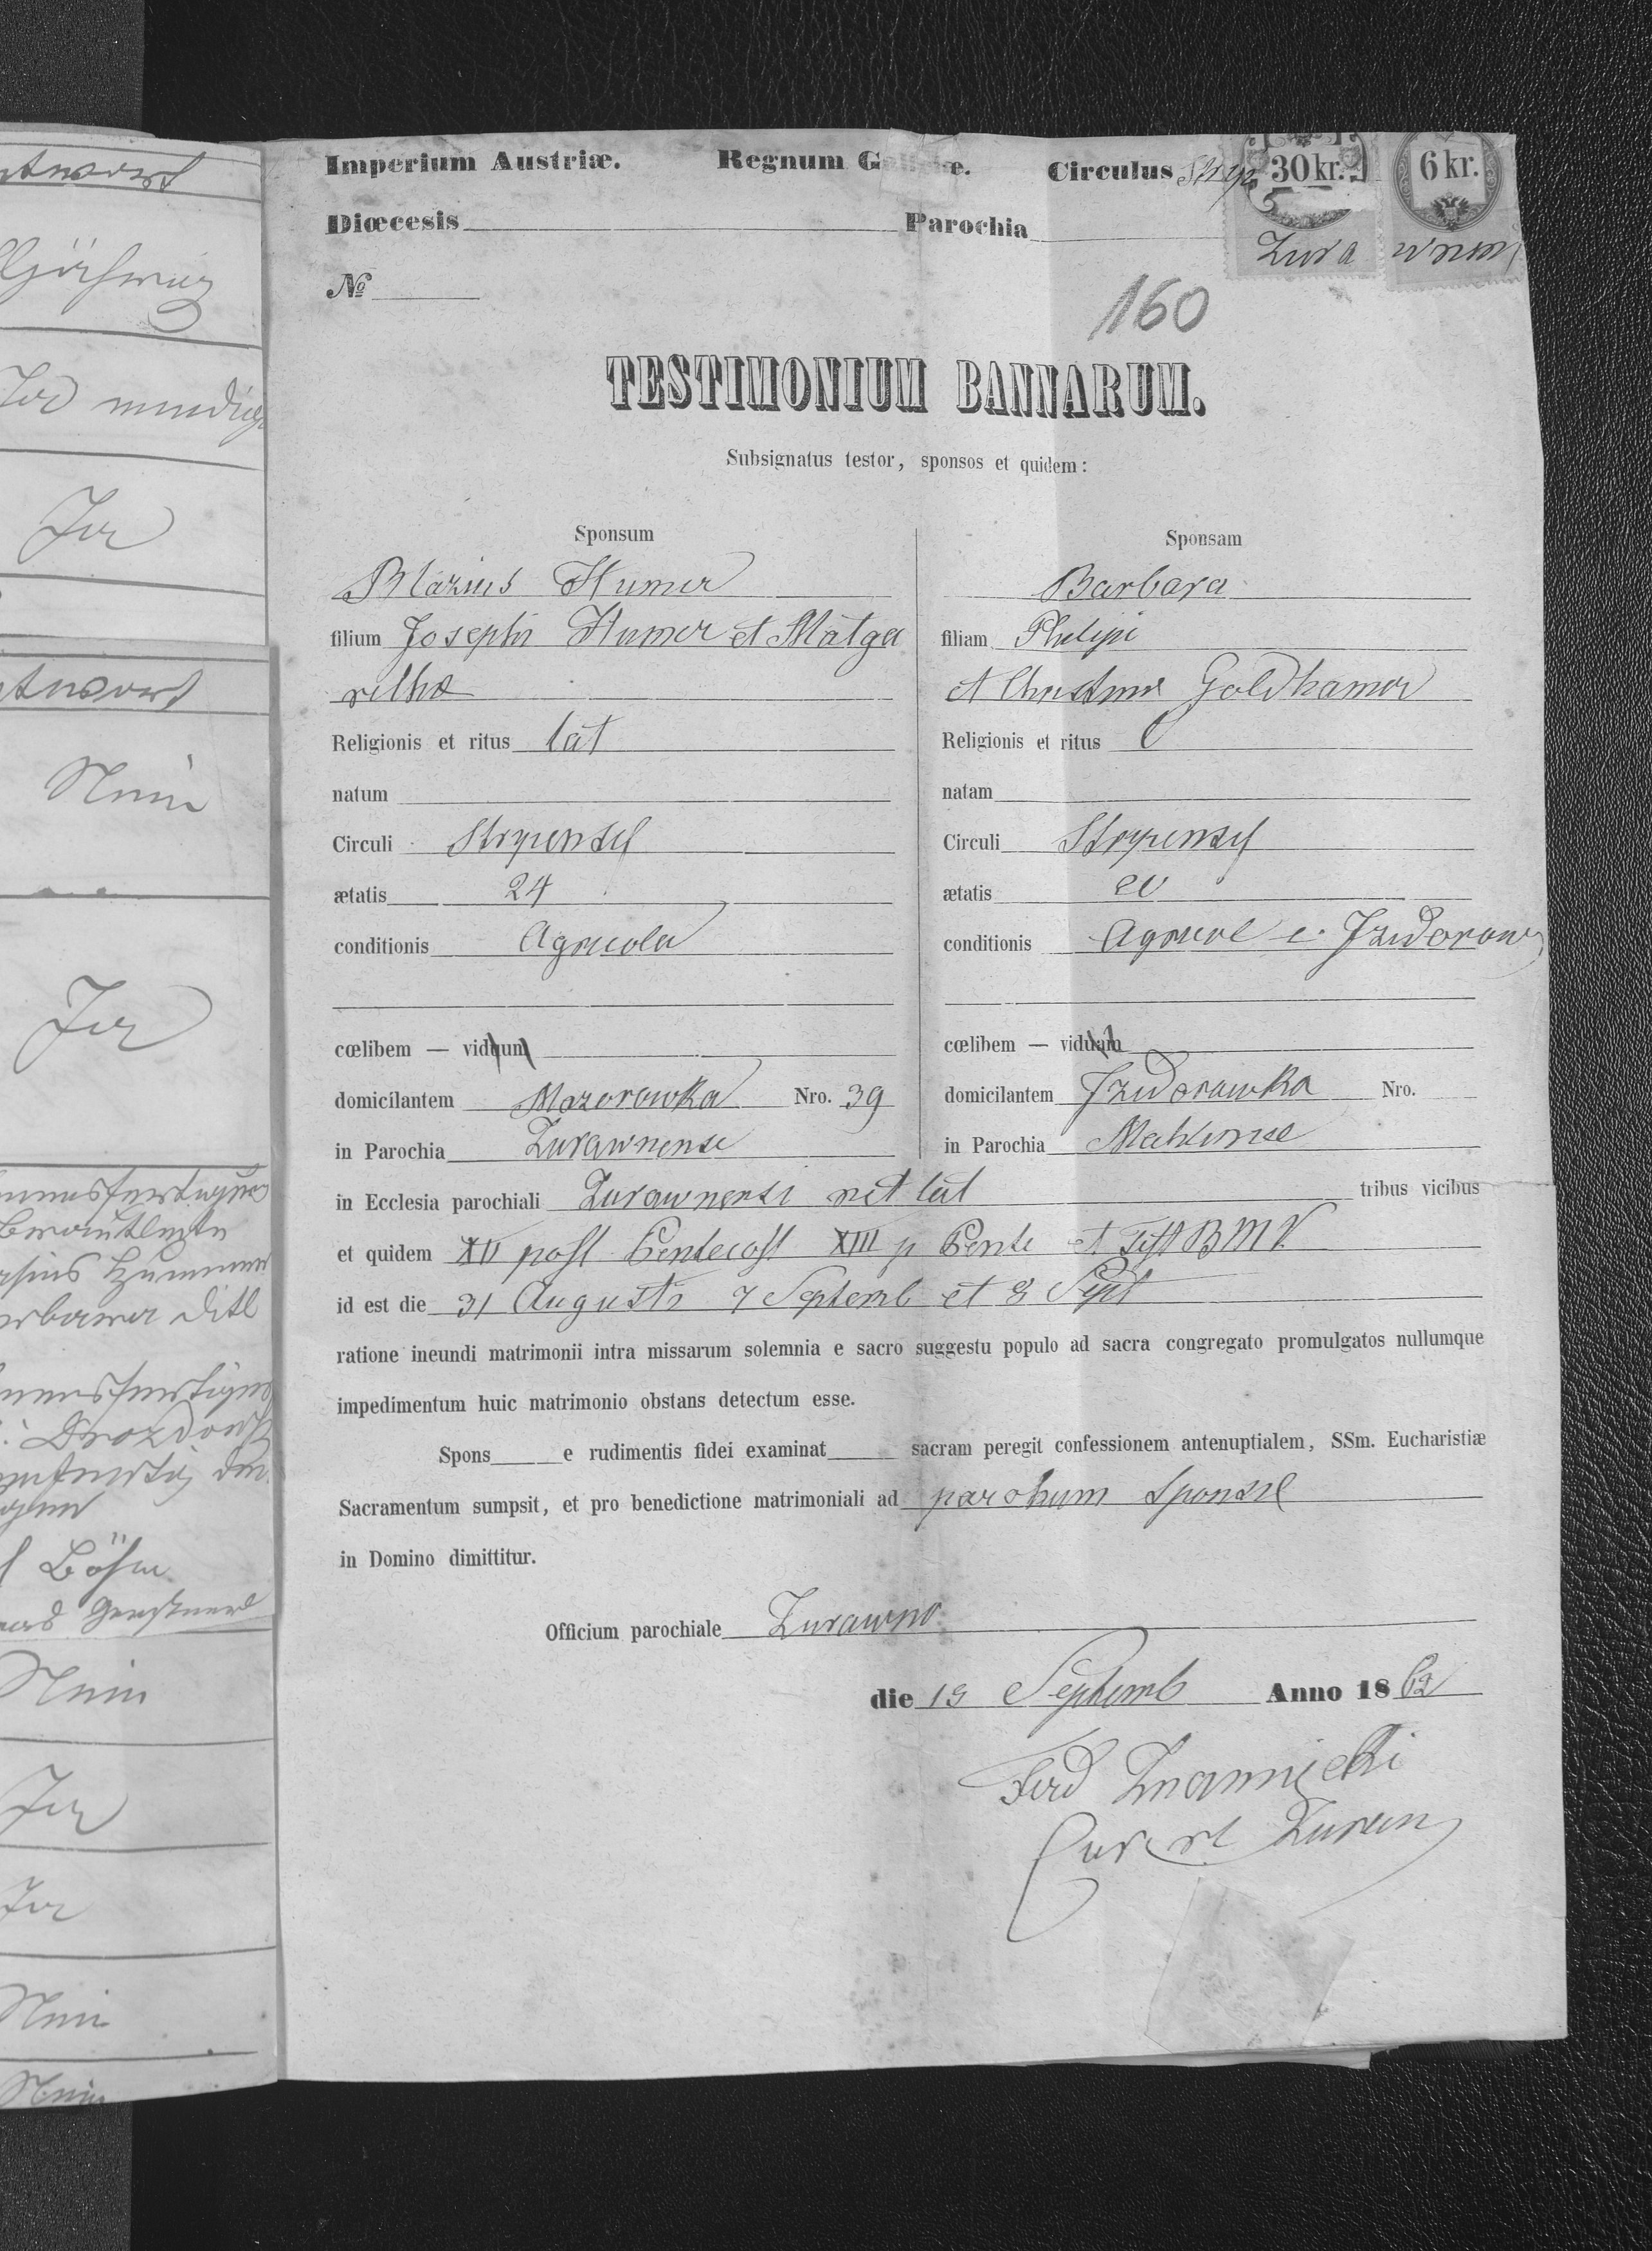 Antwort
Ja
Antwort
Nein
Ja
Böhm
Nein
Ja
Ja
Nein
Nein
Imperium Austriæ. Regnum G e. Circulus Stryj 30 kr. 6 kr.
Diœcesis Parochia Zura wnm
№
160
TESTIMONIUM BANNARUM.
Subsignatus testor, sponsos et quidem:
Sponsum
Blazius Humer
filium Josephi Humer et Marga
rethæ
Religionis et ritus lat
natum
Circuli Stryensis
ætatis 24
conditionis Agricola
cœlibem — viduum
domicilantem Mazorowka Nro. 39
in Parochia Zurawnense
Sponsam
Barbara
filiam Philipi
et Christinæ Goldhamer
Religionis et ritus
natam
Circuli Stryensis
ætatis 20
conditionis Agricol e. Izidorow
cœlibem — viduam
domicilantem Izidorawka Nro.
in Parochia
in Ecclesia parochiali Zurawnensi rit lat tribus vicibus
et quidem XII post Pentecost XIII p Pente et Fest BMV
id est die 31 Augusti 7 Septemb et 8 Sept
ratione ineundi matrimonii intra missarum solemnia e sacro suggestu populo ad sacra congregato promulgatos nullumque
impedimentum huic matrimonio obstans detectum esse.
Spons e rudimentis fidei examinat sacram peregit confessionem antenuptialem, SSm. Eucharistiæ
Sacramentum sumpsit, et pro benedictione matrimoniali ad parohum Sponsæ
in Domino dimittitur.
Officium parochiale Zurawno
die 15 Septemb Anno 1862
Ferd Znamięcki